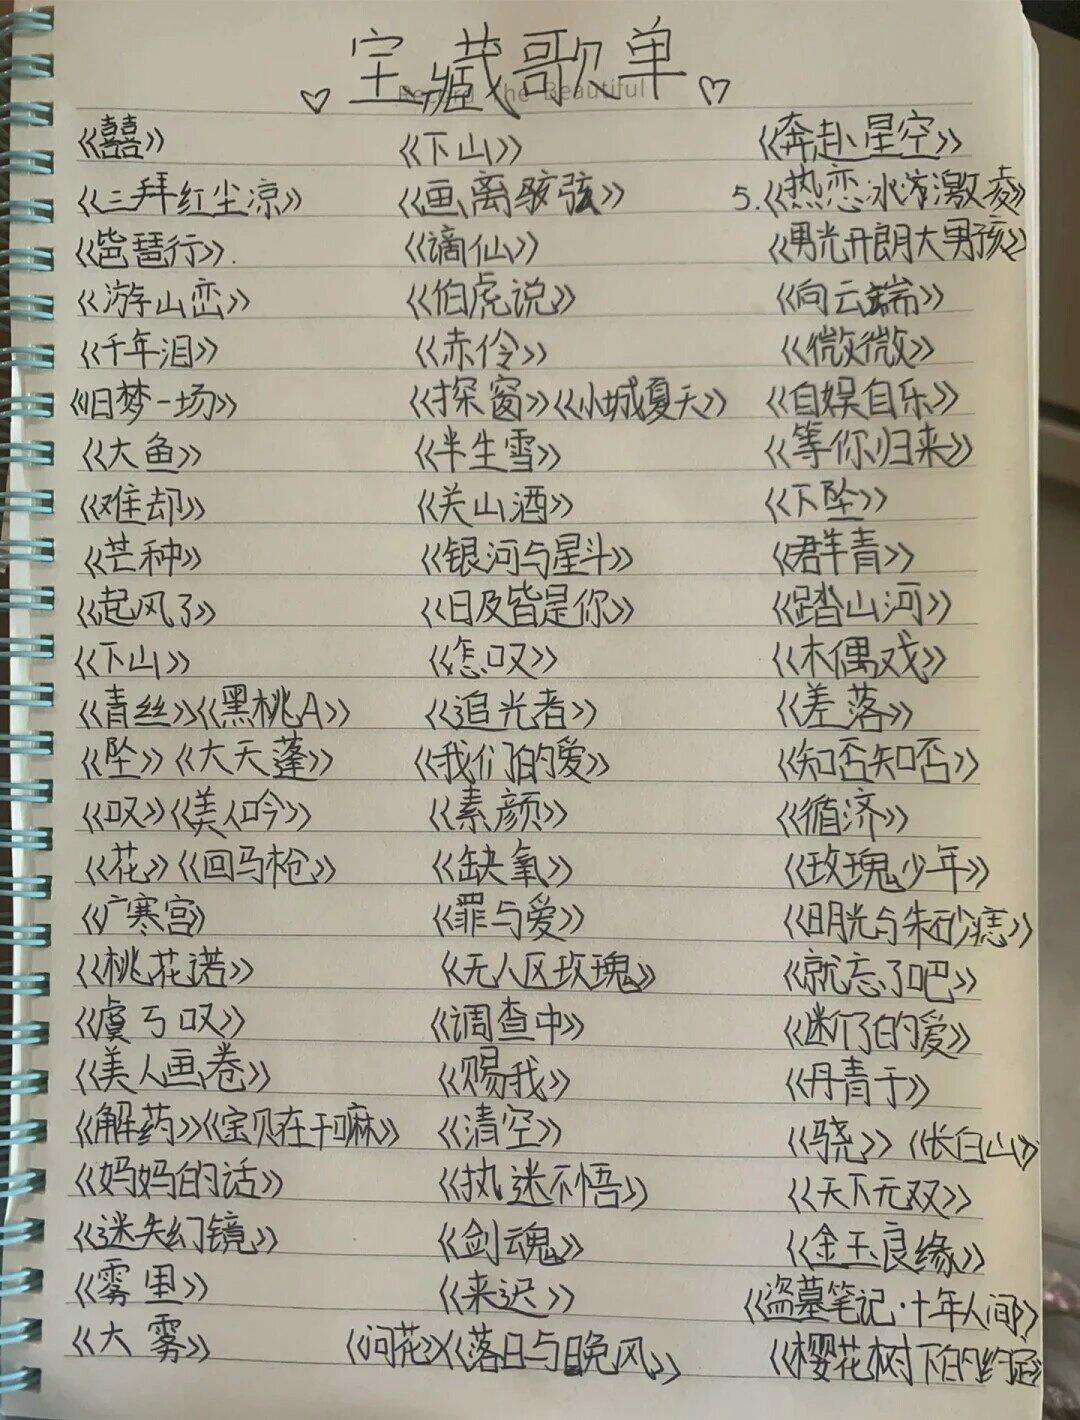 宝藏歌单
《囍》 《下山》 《奔赴星空》
《三拜红尘凉》 《画离骇弦》 5.《热恋冰激凌》
《琶琶行》. 《谪仙》 《男光开朗大男孩》
《游山峦》 《伯虎说》 《向云端》
《千年泪》 《赤伶》 《微微》
《旧梦一场》 《探窗》《小城夏天》 《自娱自乐》
《大鱼》 《半生雪》 《等你归来》
《难却》 《关山酒》 《下坠》
《芒种》 《银河与星斗》 《群青》
《起风了》 《日及皆是你》 《踏山河》
《下山》 《怎叹》 《木偶戏》
《青丝》《黑桃A》 《追光者》 《差落》
《坠》《大天蓬》 《我们的爱》 《知否知否》
《叹》《美人吟》 《素颜》 《循济》
《花》《回马枪》 《缺氧》 《玫瑰少年》
《广寒宫》 《罪与爱》 《明光与朱砂痣》
《桃花诺》 《无人区玫瑰》 《就忘了吧》
《虞丂叹》 《调查中》 《迷们的爱》
《美人画卷》 《赐我》 《丹青于》
《解药》《宝贝在干嘛》 《清空》 《骁》《长白山》
《妈妈的话》 《执迷不悟》 《天下无双》
《迷失幻镜》 《剑魂》 《金玉良缘》
《雾里》 《来迟》 《盗墓笔记·十年人间》
《大雾》 《问花》《落日与晚风》 《樱花树下的约定》